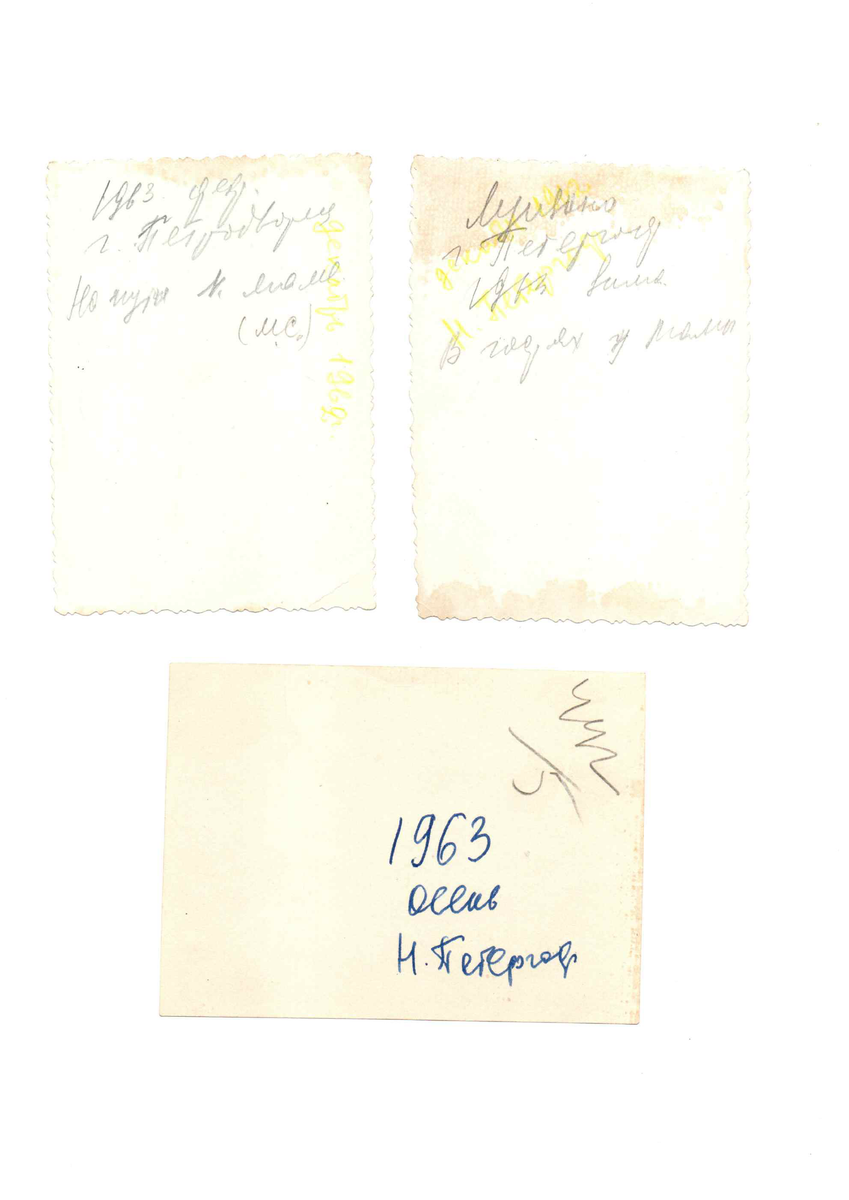 1963 дек.
г. Петродворец
На пути к маме
(М.С.)
декабрь 1963г.
г. Петергоф
1963 зима.
В гостях у мамы
декабрь
Н. Петергоф
1963
осень
Н. Петергоф